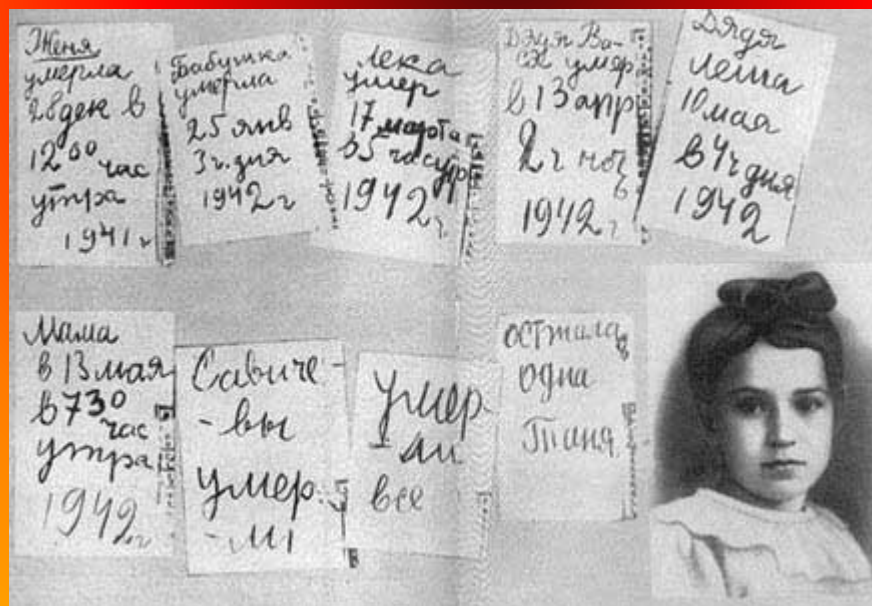 Женя
умерла
28 дек в
12 00 час
утра
1941 г
Бабушка
умерла
25 янв
3 ч. дня
1942 г
Лека
умер
17 марта
в 5 час утр
1942 г
Дядя Ва-
ся умер
в 13 апр
2 ч ночь
1942 г
Дядя
Леша
10 мая
в 4 ч дня
1942
Мама
в 13 мая
в 7 30
час
утра
1942 г
Савиче-
-вы
умер-
-ли
умер-
-ли
все
одна
Таня